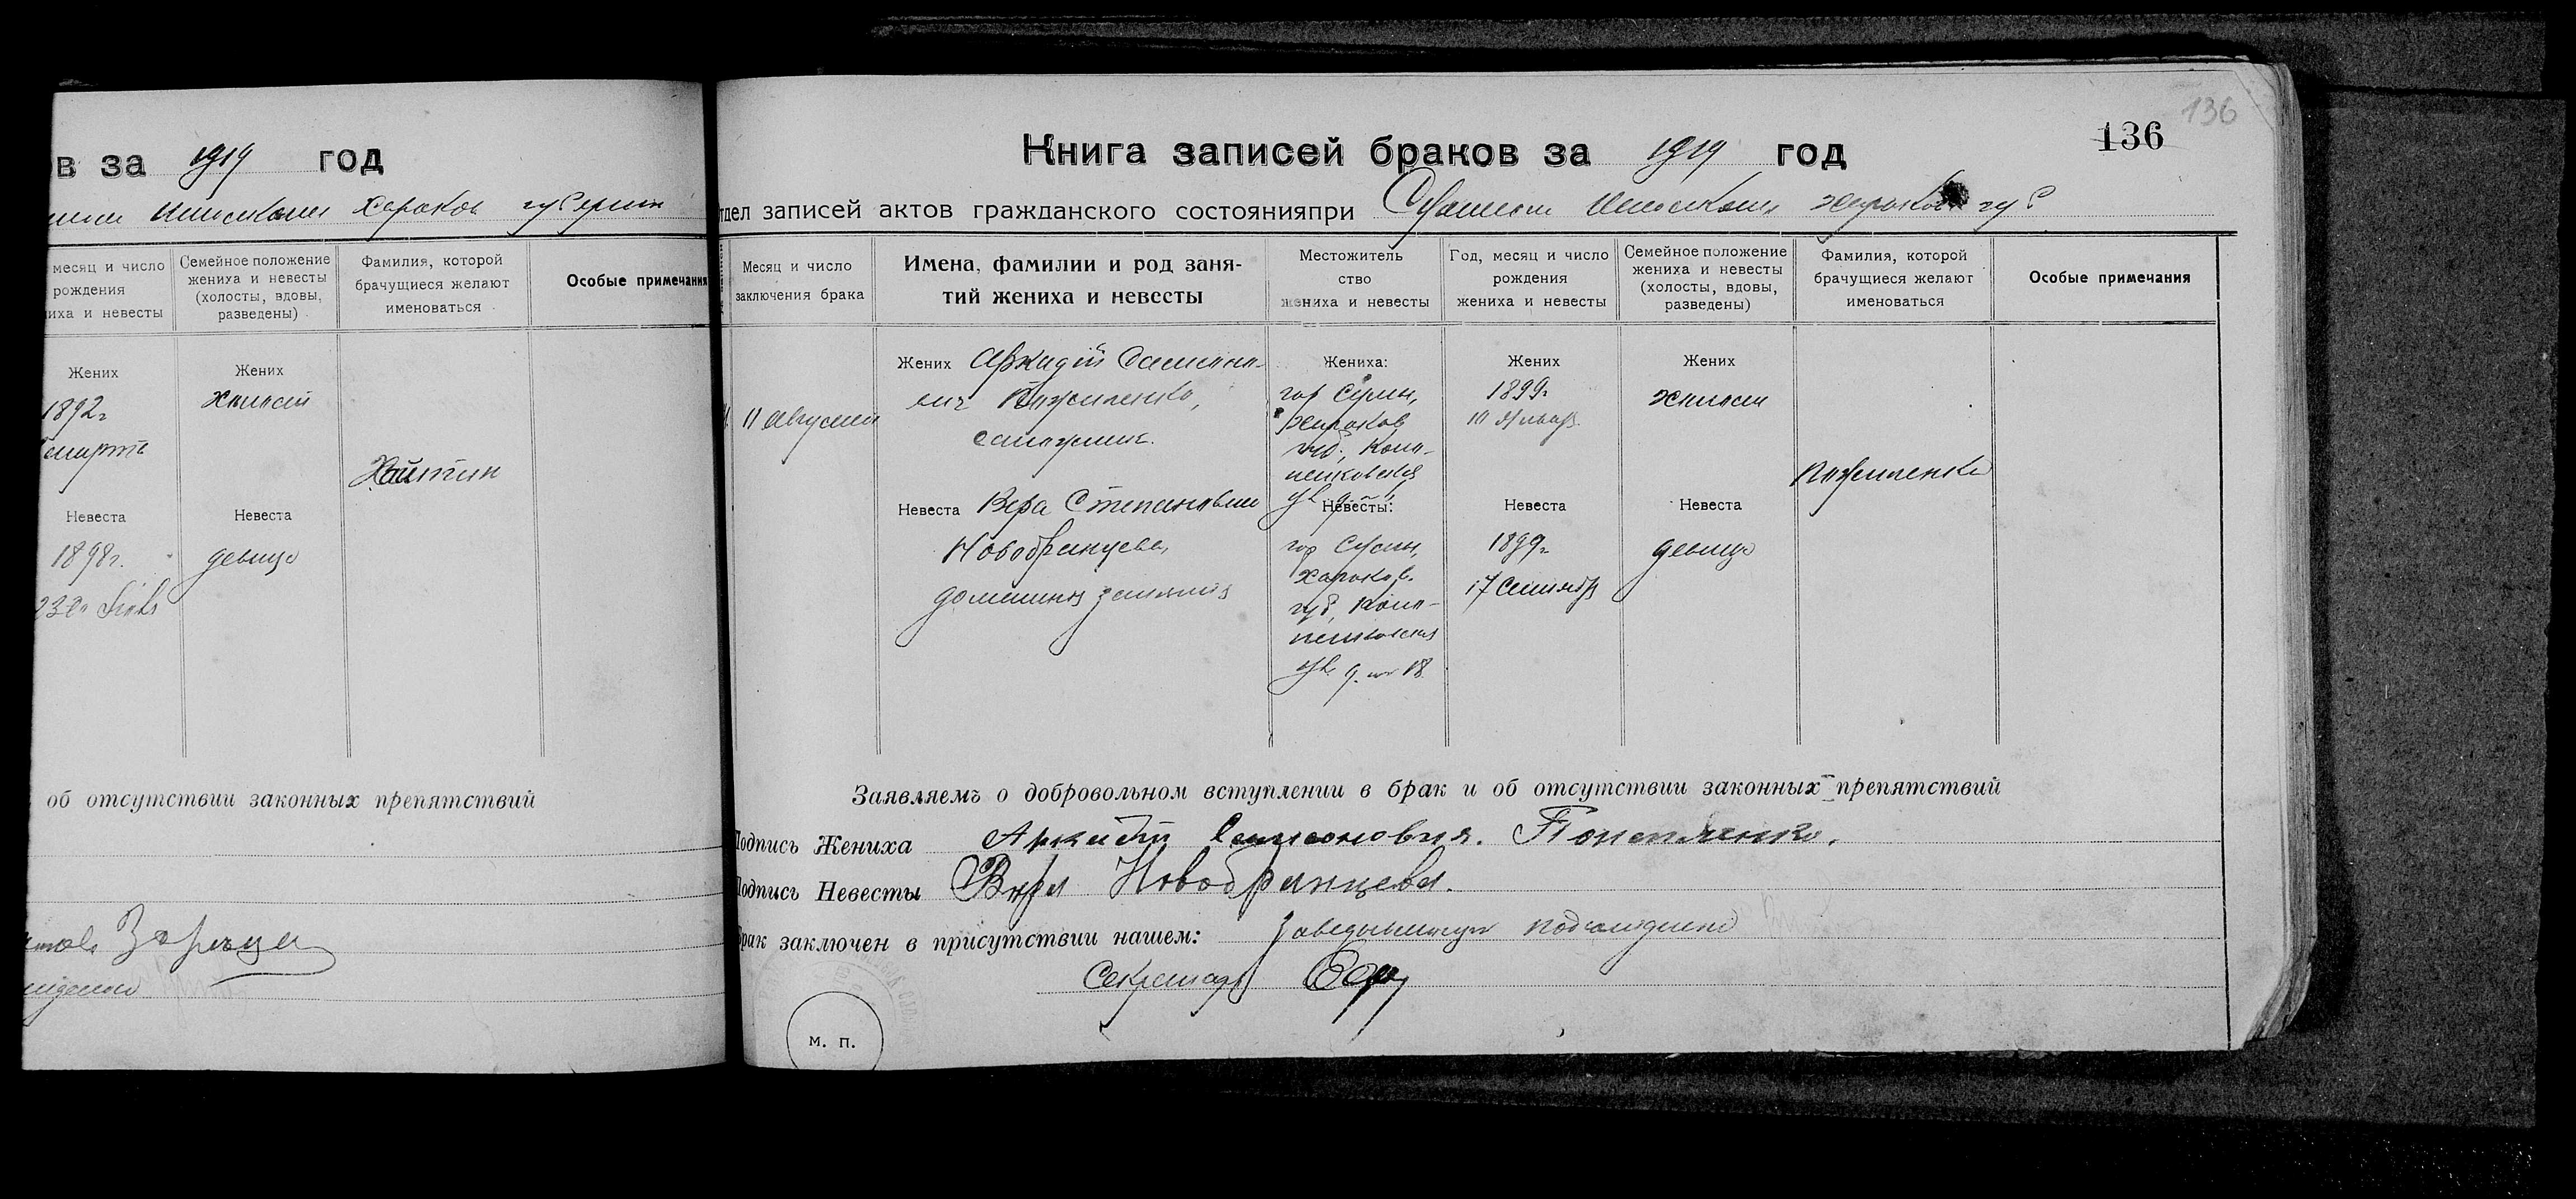 в за 1919 год
Харьков губернии
месяц и число
рождения
иха и невесты
Семейное положение
жениха и невесты
(холосты, вдовы,
разведены)
Фамилия, которой
брачущиеся желают
именоваться
Особые примечания
Жених
1892г
Жених
холост
Хайтин
Невеста
1898г.
Невеста
девица
об отсутствии законных препятствий
136
136
Книга записей браков за 1919 год
тдел записей актов гражданского состоянияпри Сумском Исполкоме Харьков губ
Месяц и число
заключения брака
Имена, фамилии и род заня-
тий жениха и невесты
Местожитель
ство
жениха и невесты
Год, месяц и число
рождения
жениха и невесты
Семейное положение
жениха и невесты
(холосты, вдовы,
разведены)
Фамилия, которой
брачущиеся желают
именоваться
Особые примечания
11 Августа
Жених Аркадий Самсоно-
вич
сапожник.
Невеста Вера Степановна
Новобранцева,
домашния занятия
Жениха:
гор Сумы,
Харьков
губ,
Невесты:
гор Сумы,
Харьков.
губ,
ул д. № 18
Жених
1899г
10 Январ
Невеста
1899г
17 Сентябр
Жених
холост
Невеста
девица
Заявляемъ о добровольном вступлении в брак и об отсутствии законных препятствий
Подпись Жениха Аркадий Самсонович.
Подпись Невесты Вера Новобранцева.
Брак заключен в присутствии нашем: Заведывающий подотделом
Секретарь
м. п.